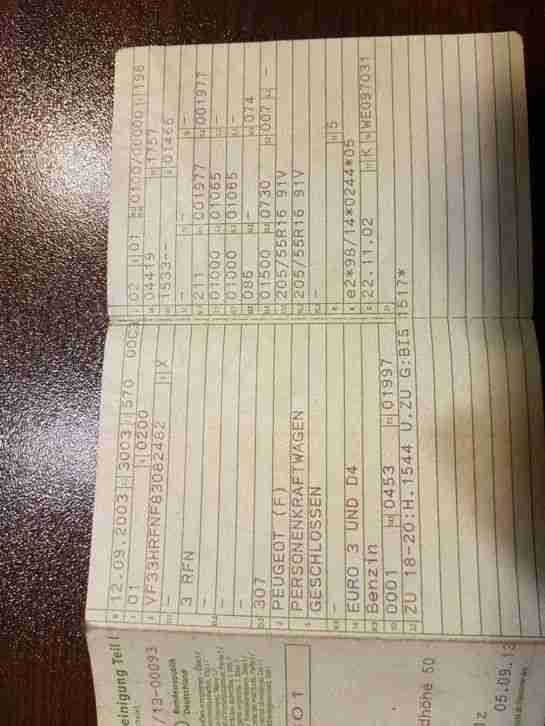 12.09.2003 3003 570 00C
01 0200
VF33HRFNF83082482 X
-
3 RFN
-
-
-
307
PEUGEOT (F)
PERSONENKRAFTWAGEN
GESCHLOSSEN
-
EURO 3 UND D4
Benzin
0001 0453 01997
ZU 18-20:H.1544 U.ZU G:BIS 1517*
02 01 0100/06000 196
04419 1757
1533-- 01466
- - -
211 001977 001977
01000 01065 -
01000 01065 -
086 - 074
01500 0730 007 -
205/55R16 91V
205/55R16 91V
-
5
e2*98/14*0244*05
22.11.02 K WE097031
einigung Teil I
/13-00093
Bundesrepublik
Deutschland
01
dhöhe 50
05.09.13